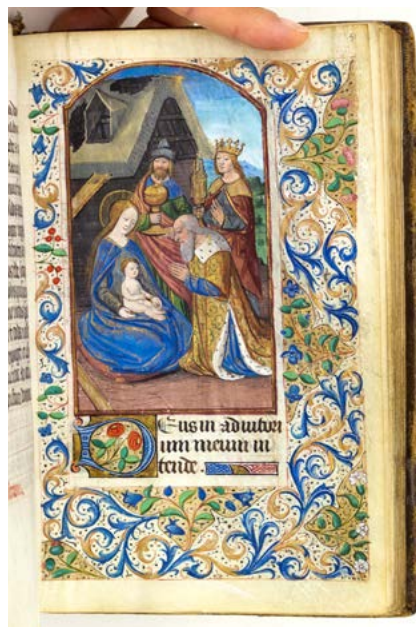 Deus in adiutori
um meum in
tende.